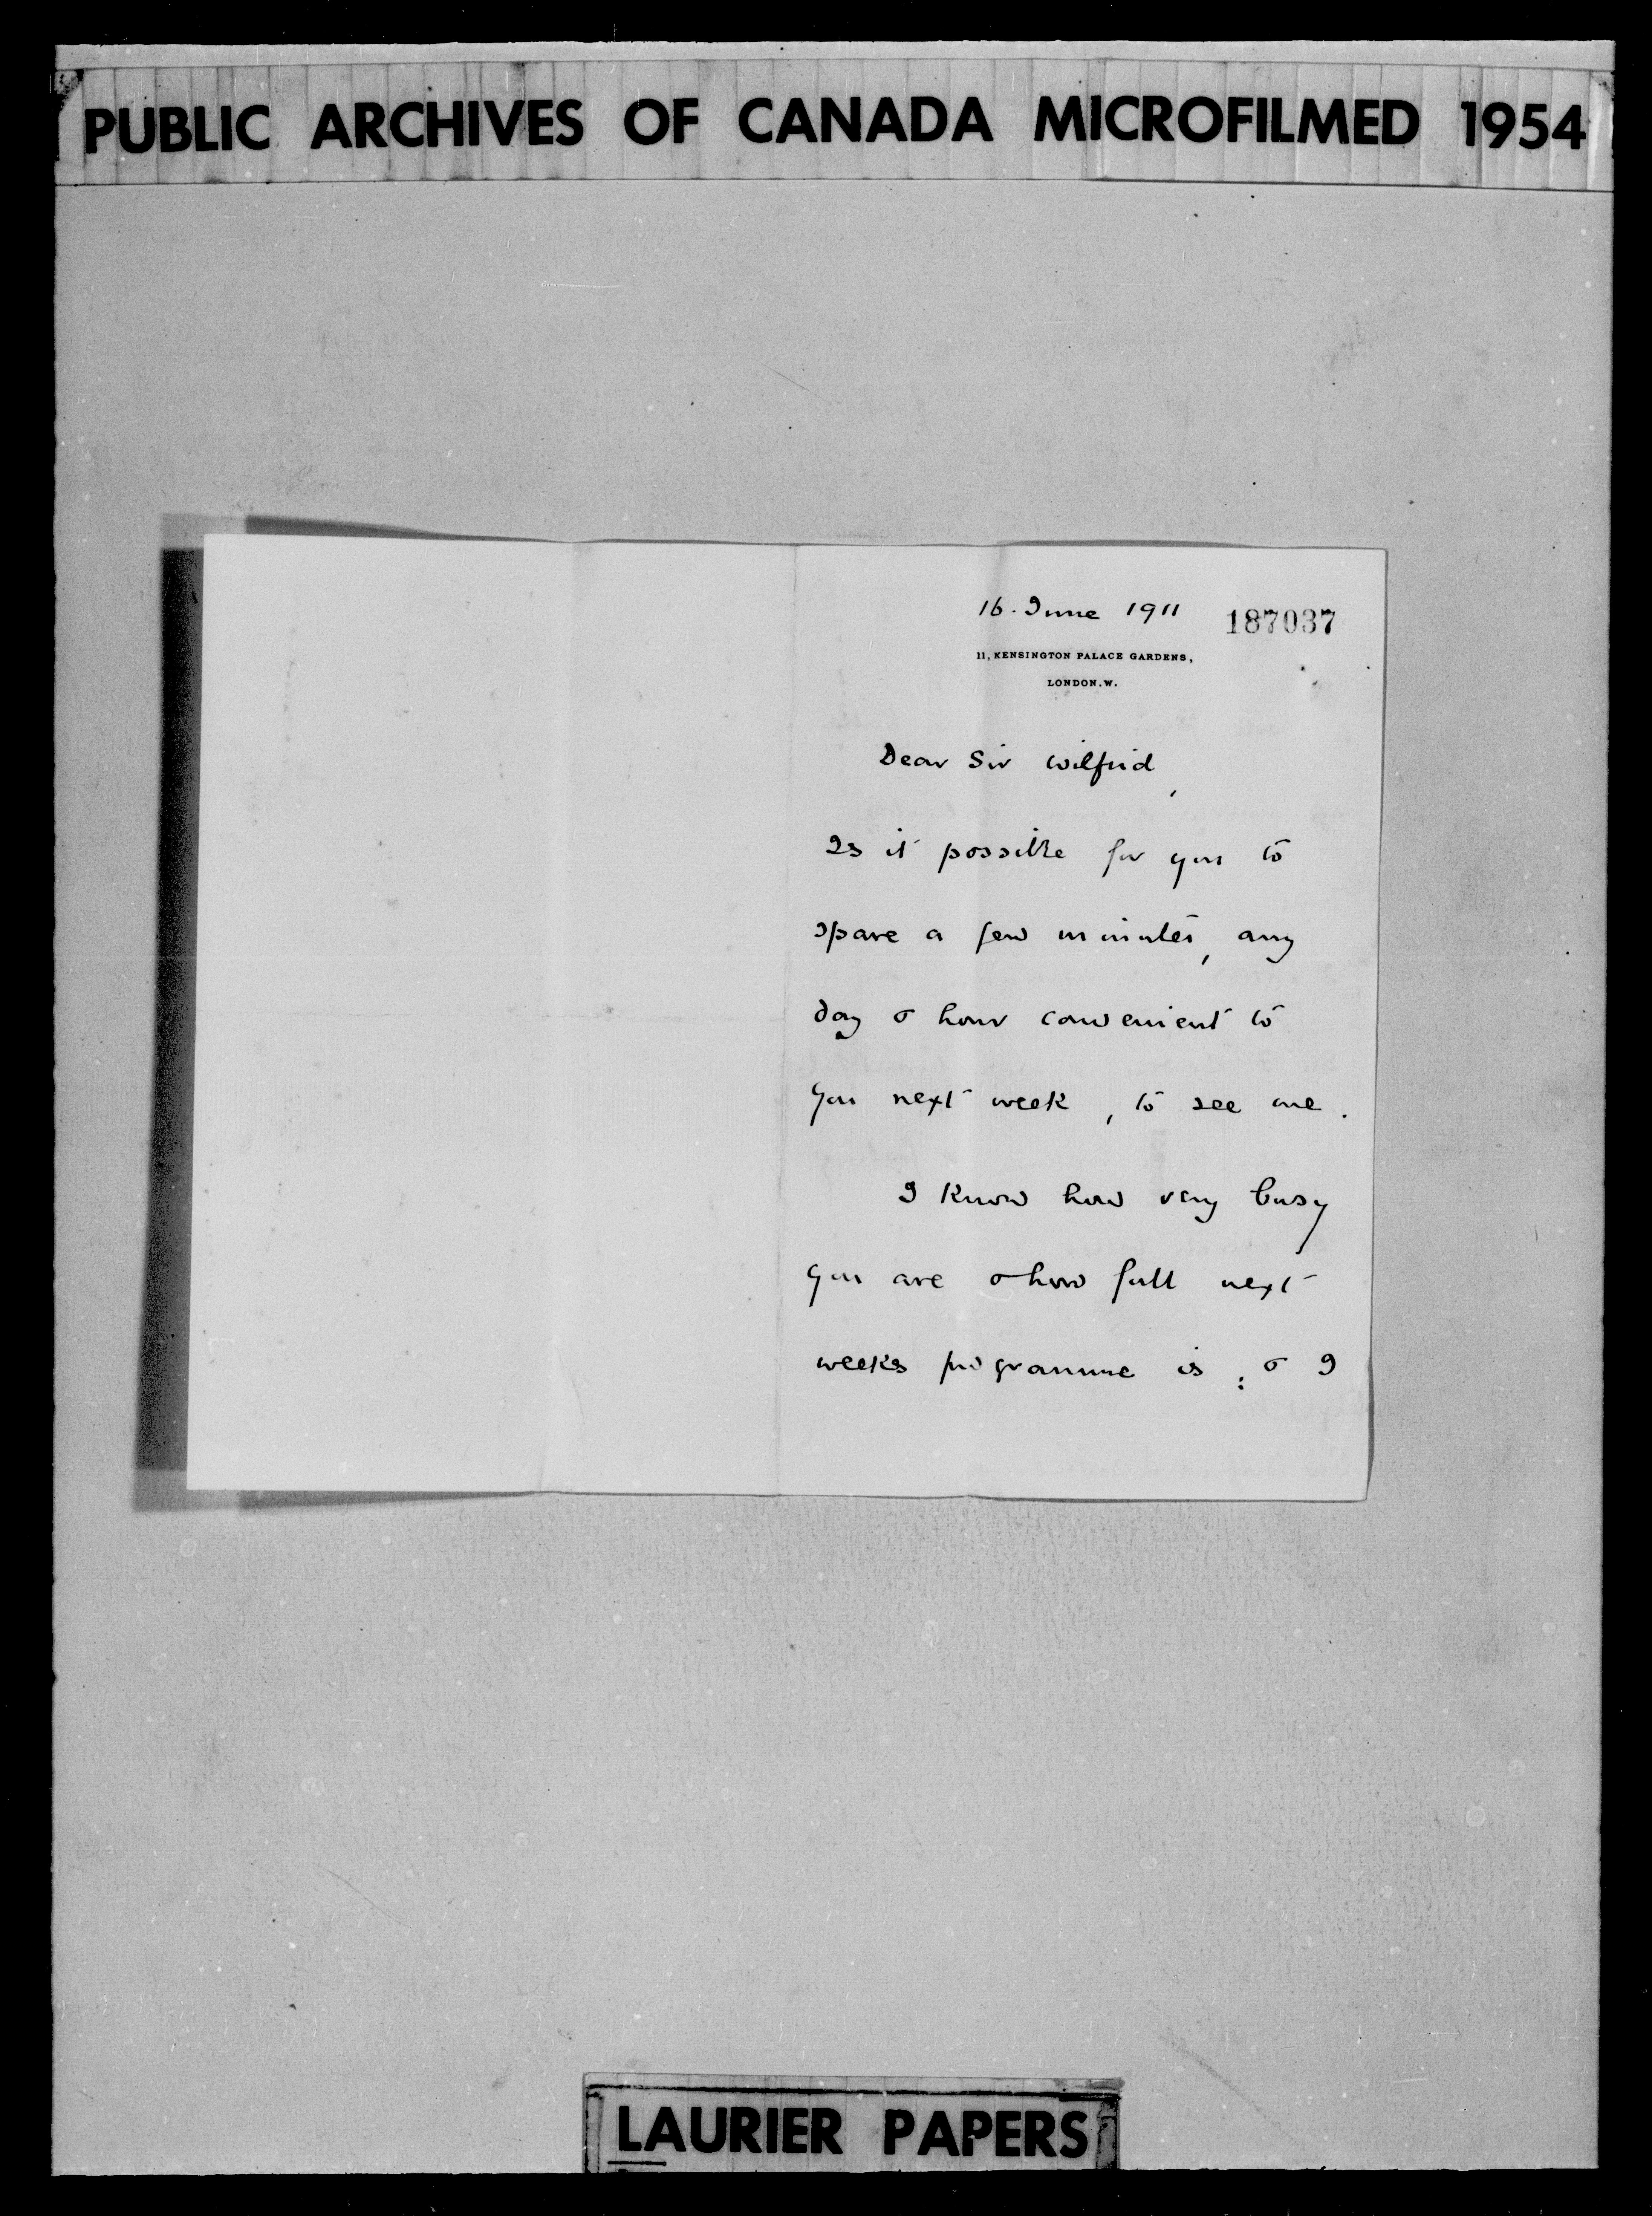 PUBLIC ARCHIVES OF CANADA MICROFILMED 1954
16. June 1911 187037
11, KENSINGTON PALACE GARDENS,
LONDON. W.
Dear Sir Wilfrid,
Is it possible for you to
spare a few minutes, any
day & hour convenient to
you next week, to see me.
I know how very busy
you are & how full next
weeks programme is; & I
LAURIER PAPERS